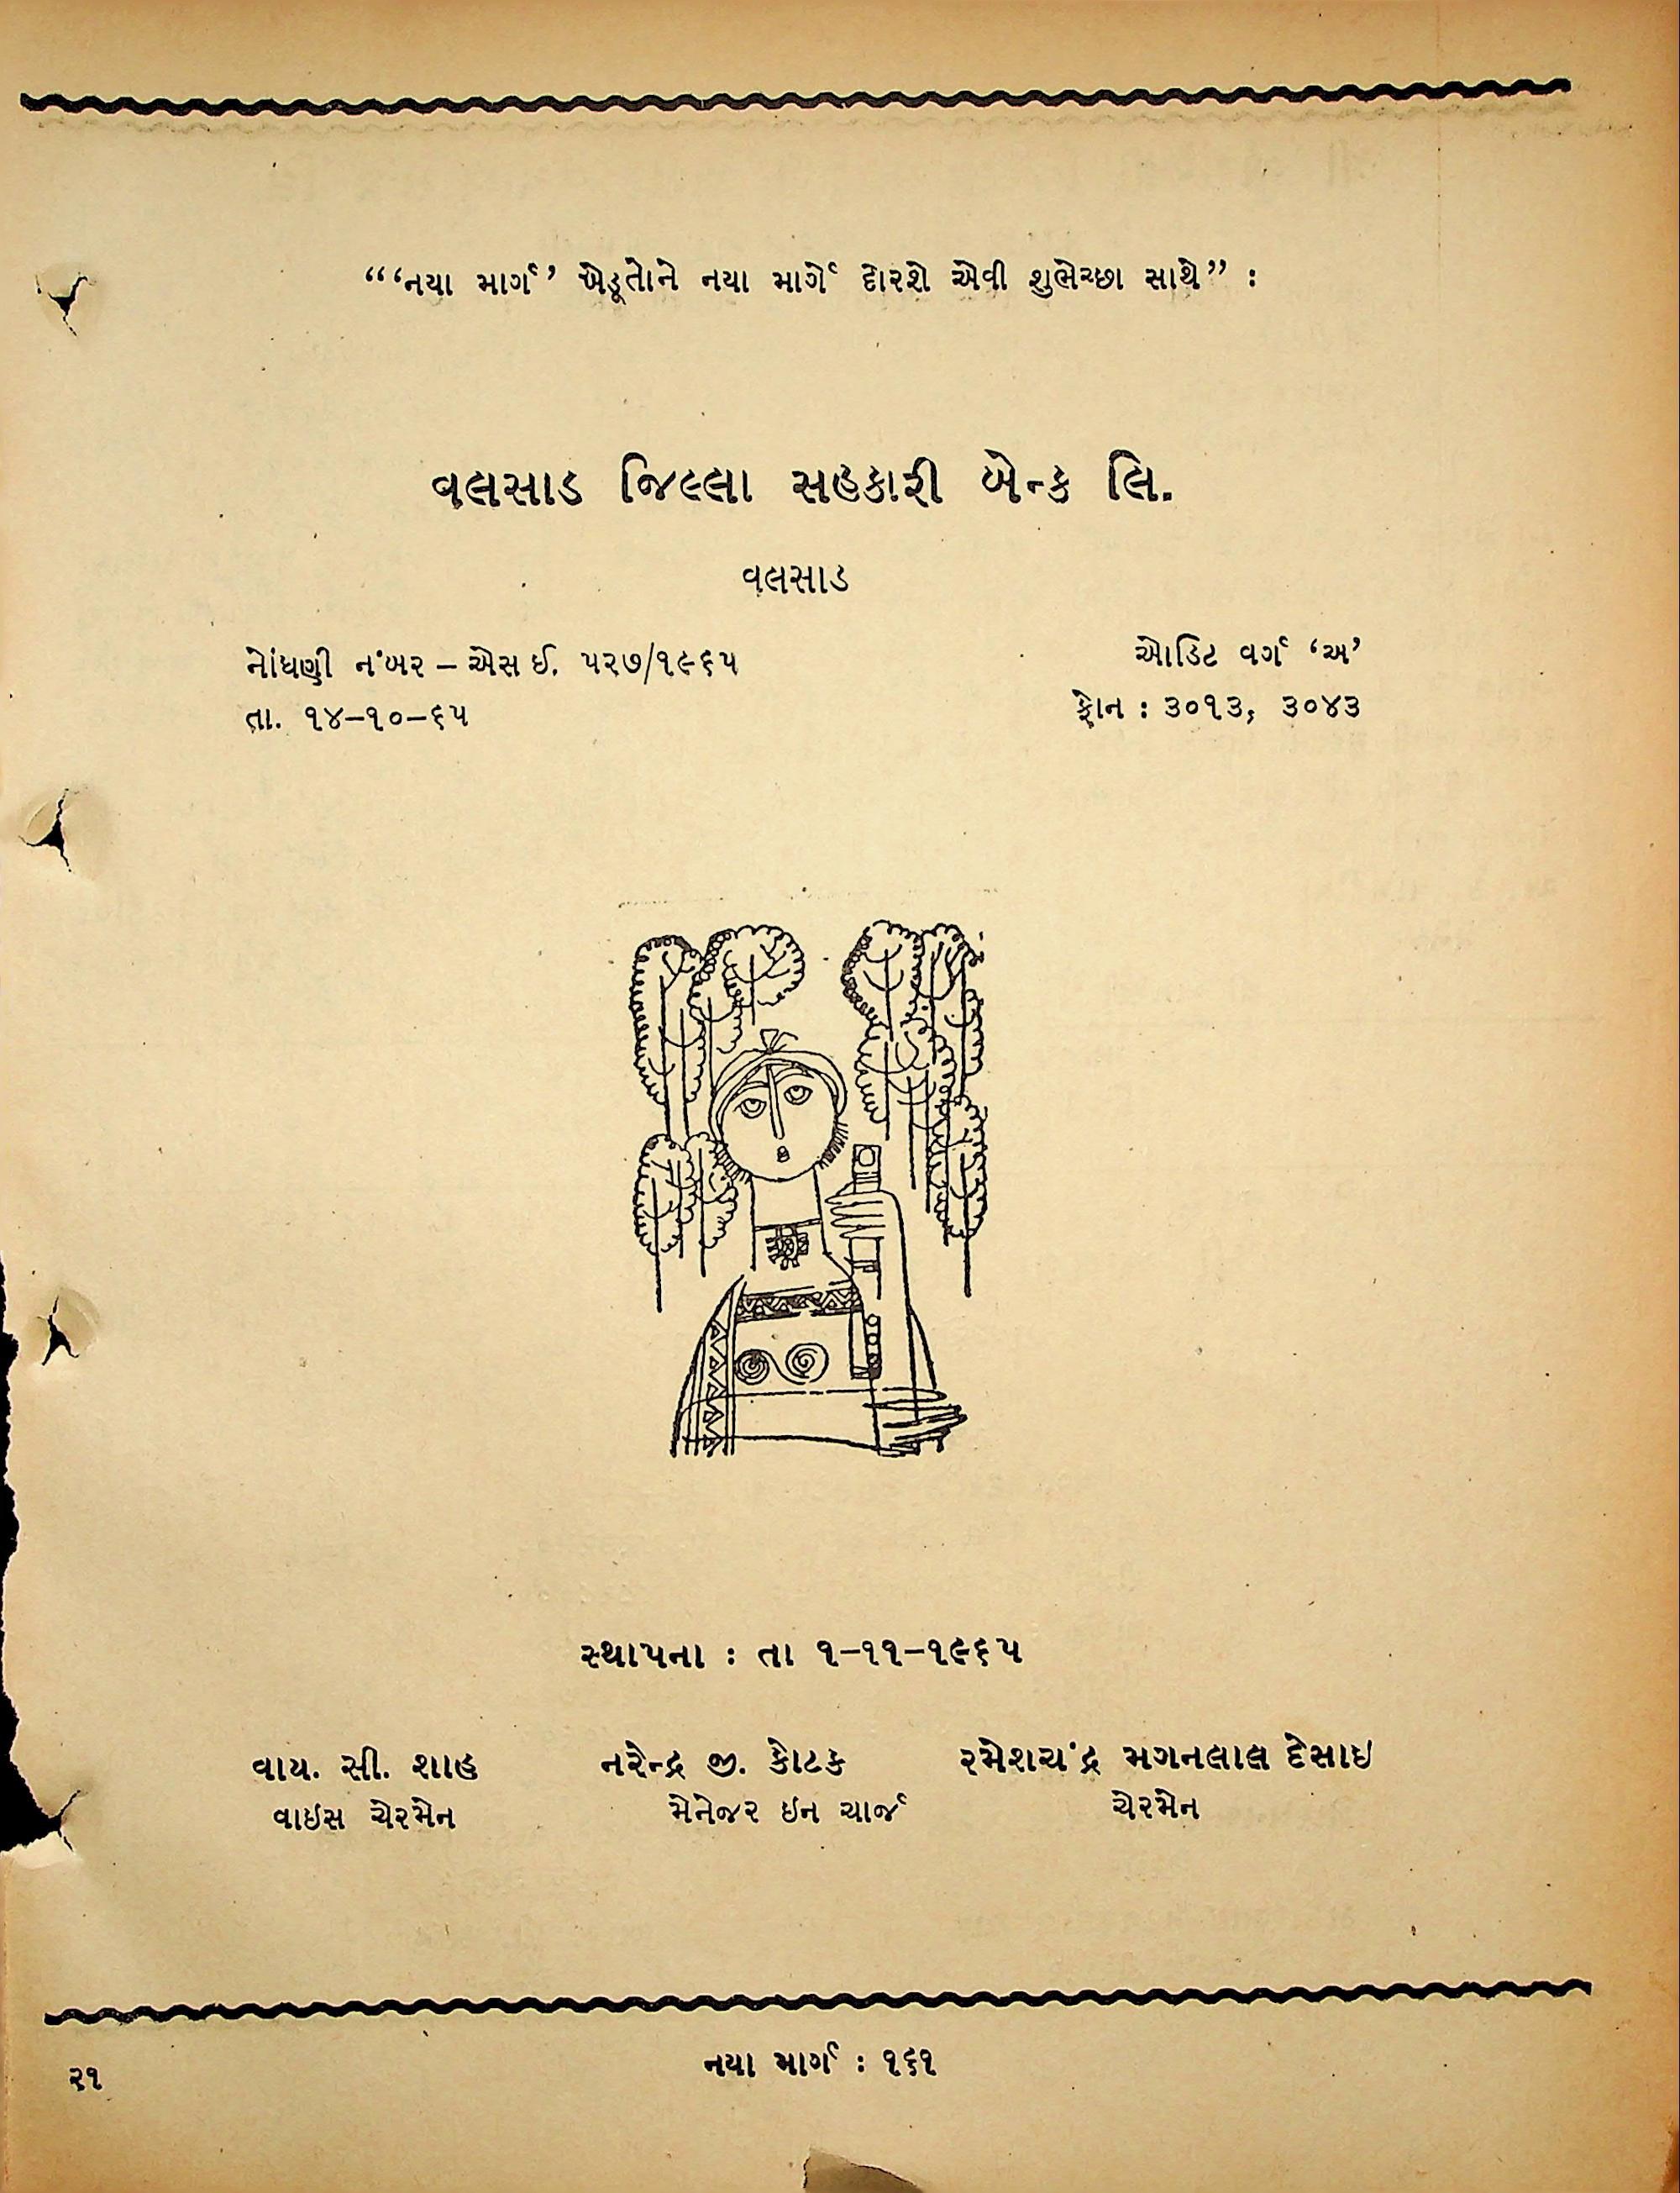 “‘નયા માર્ગ’ ખેડૂતોને નયા માર્ગે દોરશે એવી શુભેચ્છા સાથે” :
વલસાડ જિલ્લા સહકારી બેન્ક લિ.
વલસાડ
નોંધણી નંબર – એસ ઈ. ૫૨૭/૧૯૬૫
ઓડિટ વર્ગ ‘અ’
તા. ૧૪–૧૦–૬૫
ફોન : ૩૦૧૩, ૩૦૪૩
સ્થાપના : તા ૧–૧૧–૧૯૬૫
વાય. સી. શાહ
વાઇસ ચેરમેન
નરેન્દ્ર જી. કોટક
મેનેજર ઇન ચાર્જ
રમેશચંદ્ર મગનલાલ દેસાઇ
ચેરમેન
નયા માર્ગ : ૧૬૧
૨૧